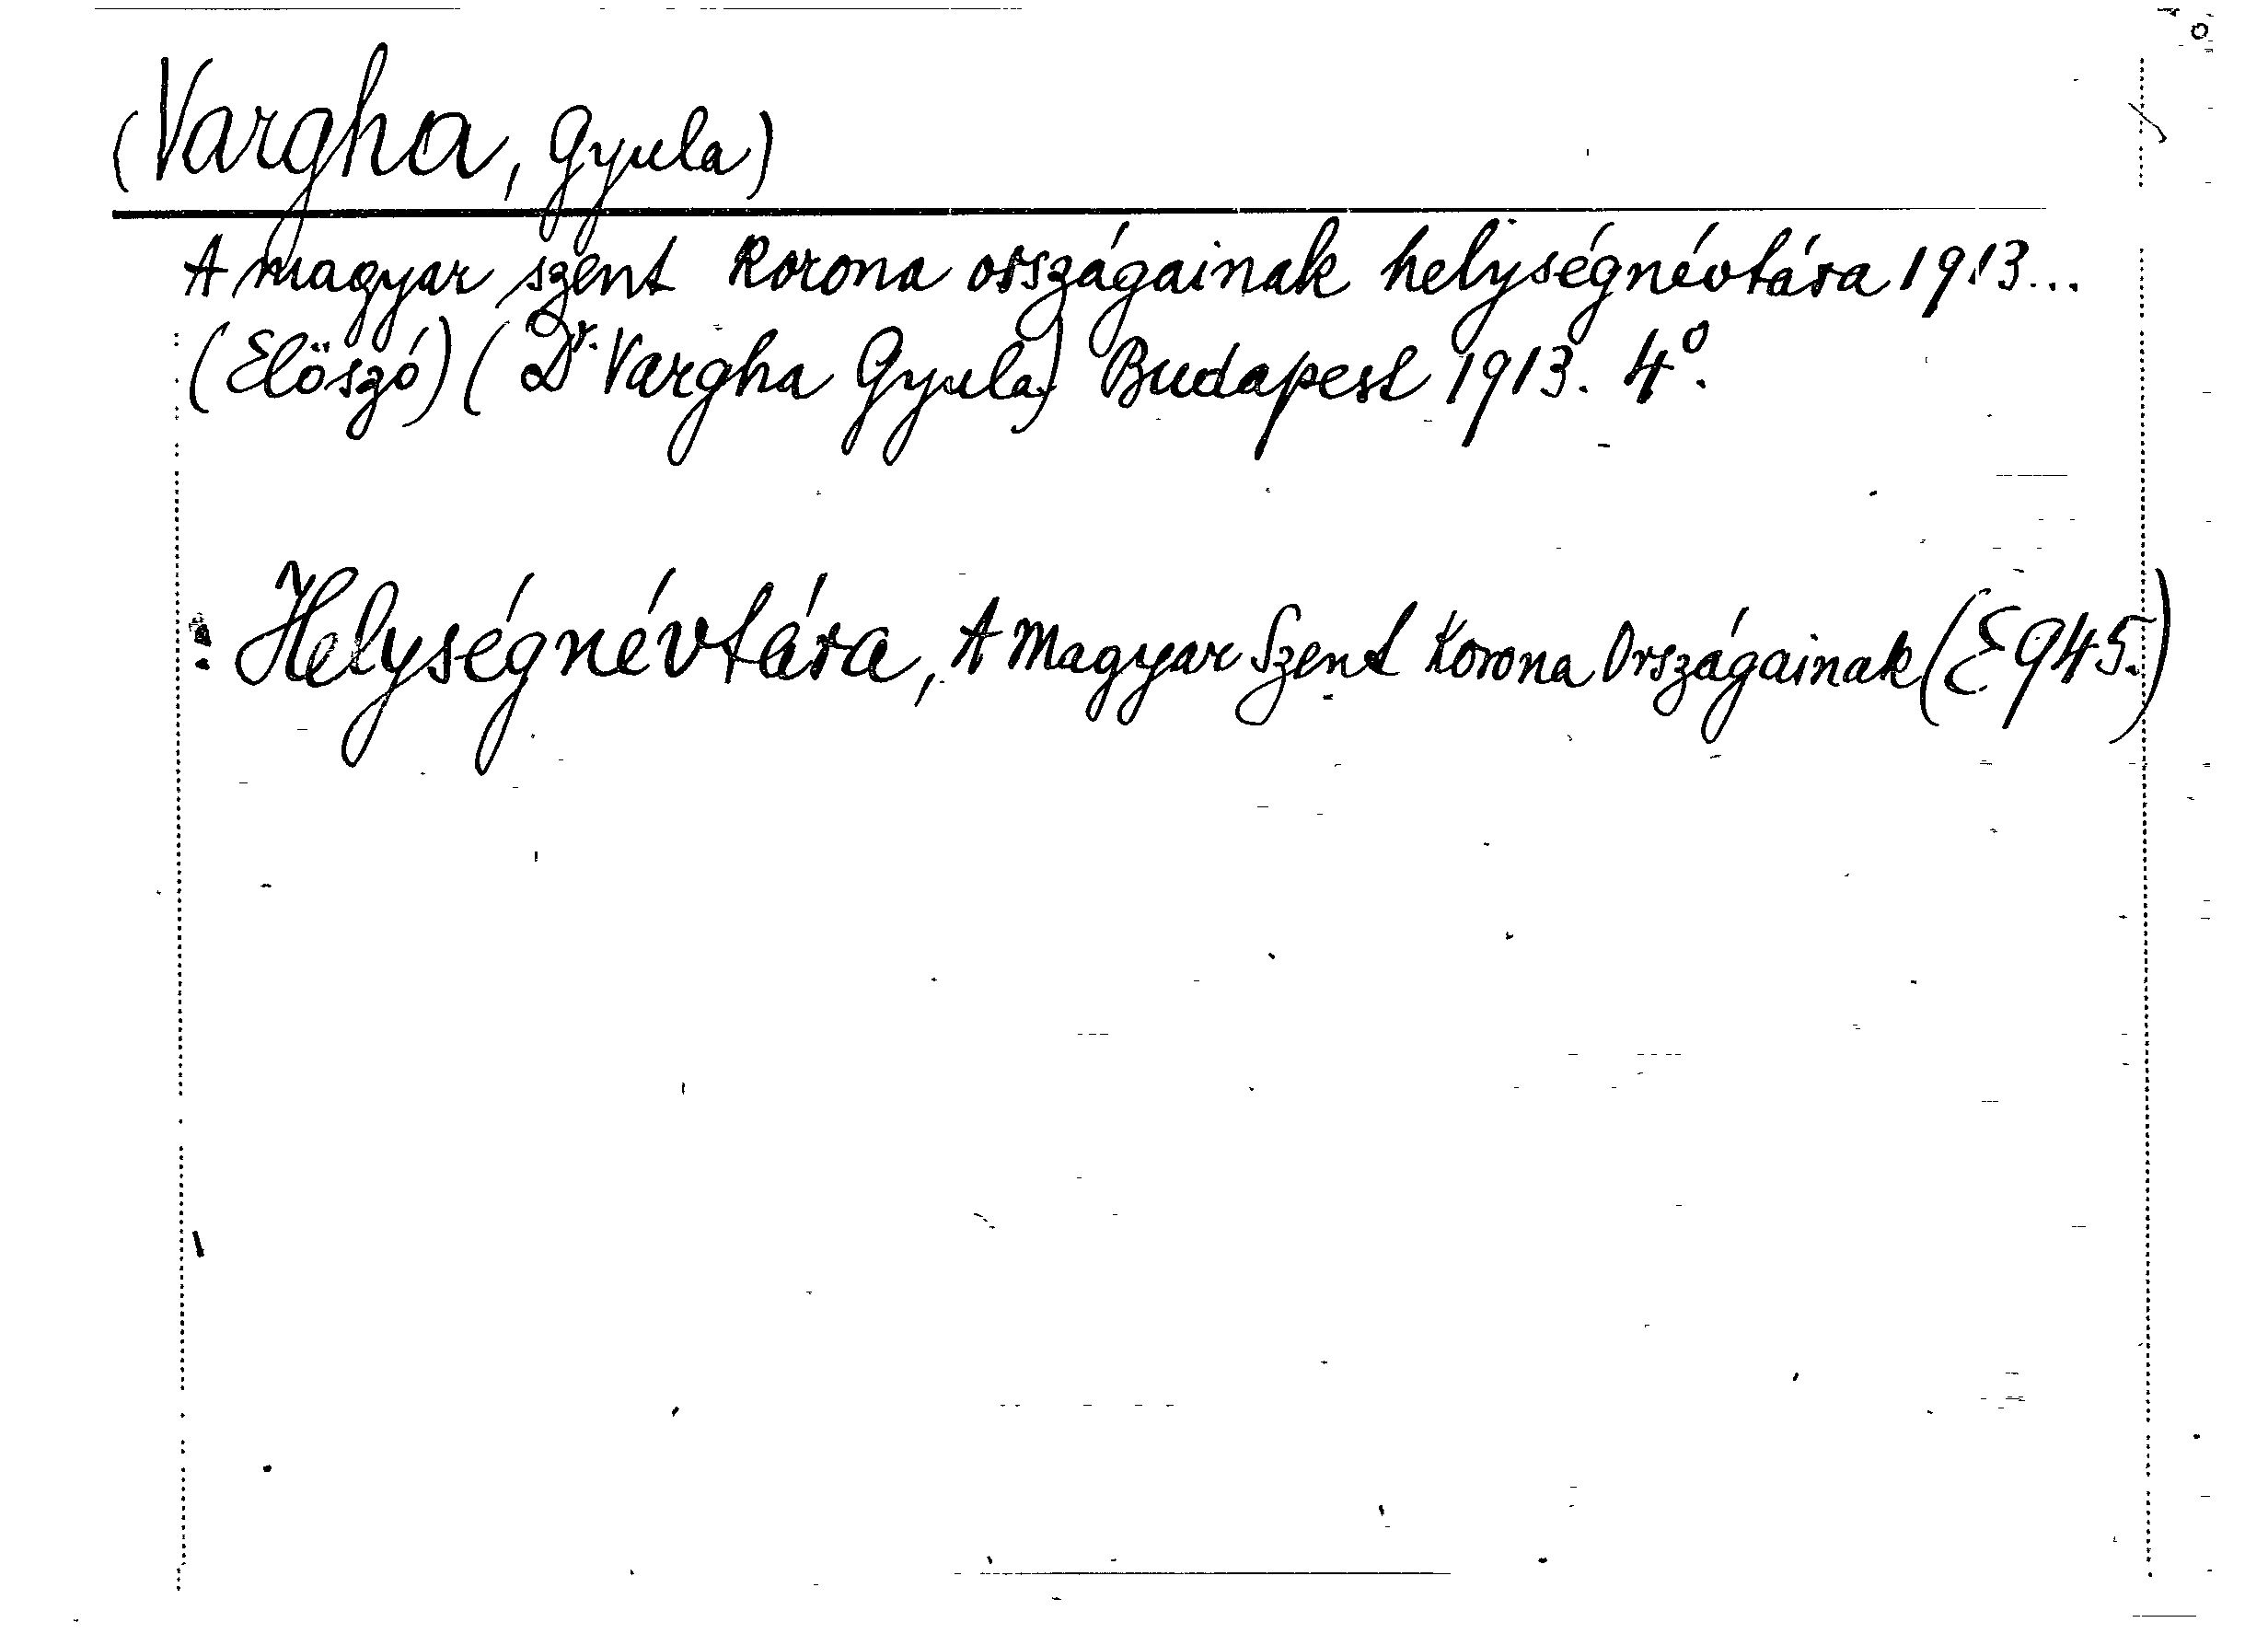 (Vargha, Gyula)
A magyar szent korona országainak helységnévtára 1913...
(Elöszó) (Dr. Vargha Gyula) Budapest 1913. 4°.
: Helységnévtára, A Magyar Szent Korona Országainak (E 945.)